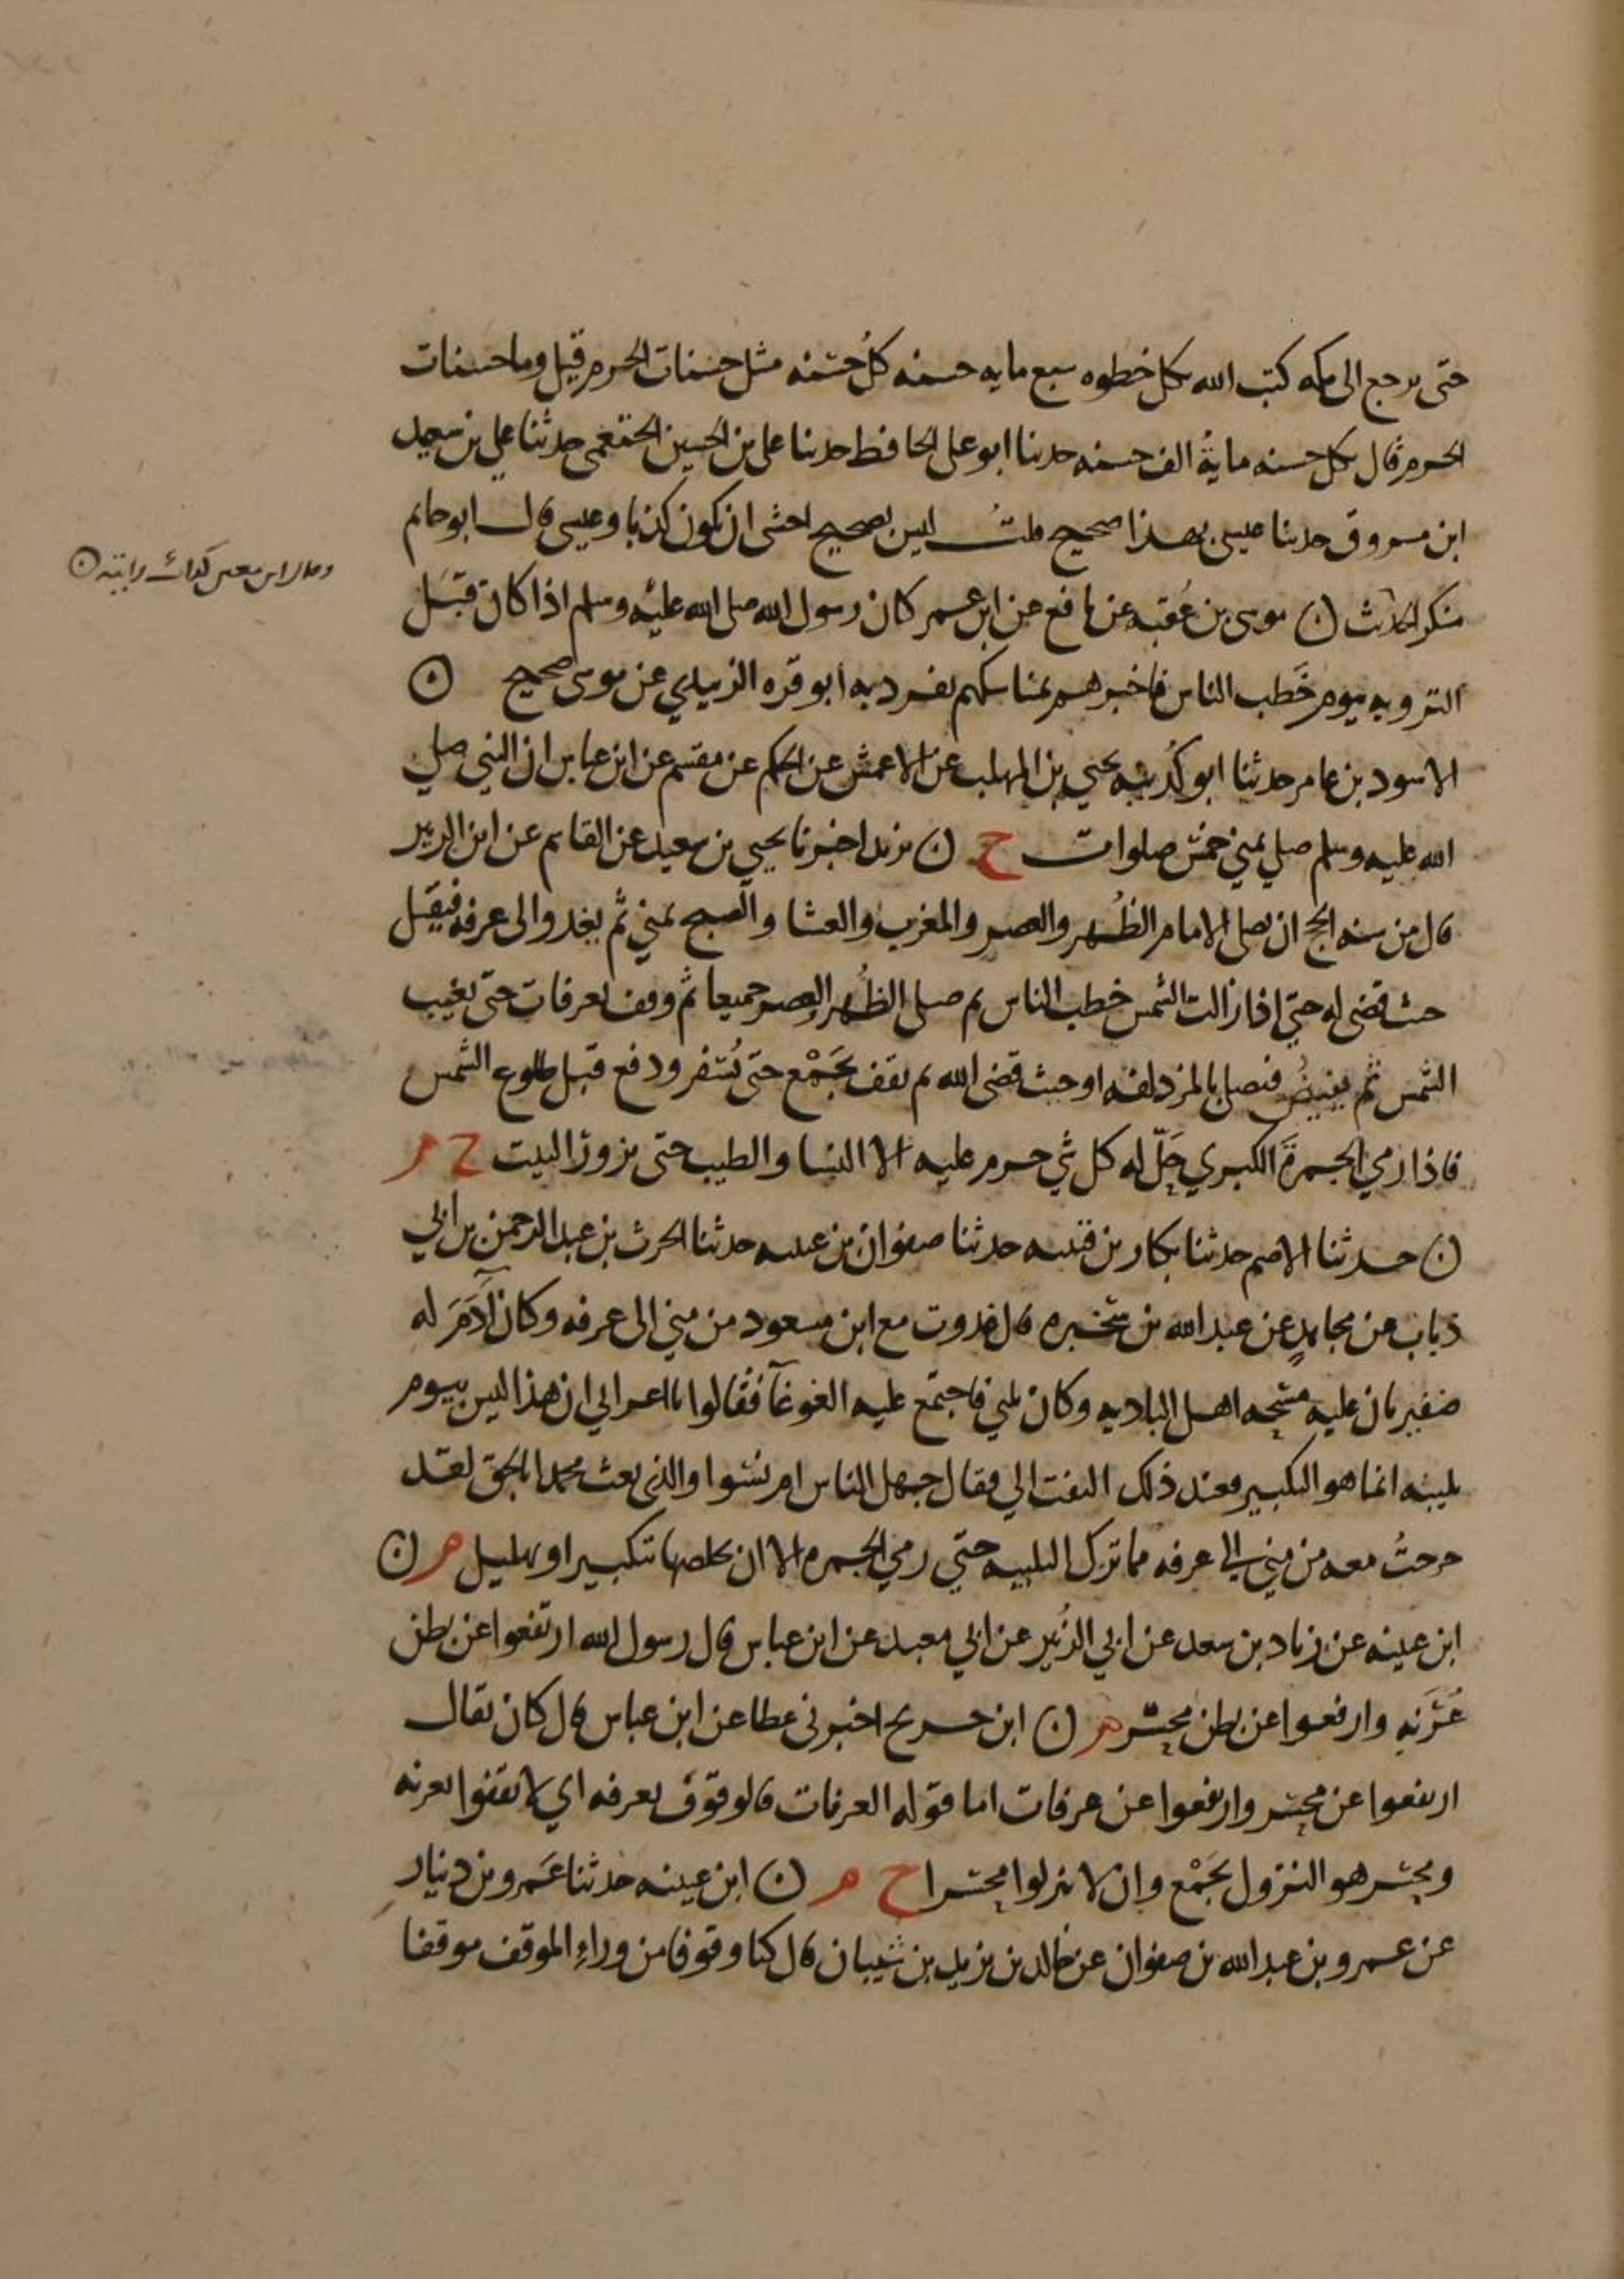 حتى يرجع الى مكه كتب الله بكل خطوه سبع مايه حسنه كل حسنه مثل حسنات الحرم قيل وما حسنات
الحرم قال بكل حسنه ماية الف حسنه حدثنا ابو على الحافظ حدثنا على بن الحسين الخثعمى حدثنا على بن سعيد
ابن مسروق حدثنا عيسى بهذا صحيح قلت ليس بصحيح اخشى ان يكون كذبا وعيسى قال ابو حاتم
منكر الحديث ن موسى بن عقبه عن نافع عن ابن عمر كان رسول الله صلى الله عليه وسلم اذا كان قبل
الترويه بيوم خطب الناس فاخبرهم بمناسكهم تفرد به ابو قره الزبيدي عن موسى صحيح ن
الاسود بن عامر حدثنا ابو كدينه يحيى بن المهلب عن الاعمش عن الحكم عن مقسم عن ابن عباس ان النبي صلى
الله عليه وسلم صلى بمني خمس صلوات خ ن يزيد اخبرنا يحيى بن سعيد عن القاسم عن ابن الزبير
قال من سنه الحج ان يصلى الامام الظهر والعصر والمغرب والعشا والصبح بمني ثم يغدوا الى عرفه فيقيل
حيث قضى له حتى اذا زالت الشمس خطب الناس ثم صلى الظهر والعصر جميعا ثم وقف بعرفات حتى تغيب
الشمس ثم يفيض فيصلى بالمزدلفه او حيث قضى الله ثم يقف بجمع حتى يسفر ودفع قبل طلوع الشمس
فاذا رمي الجمرة الكبري حل له كل شي حرم عليه الا النسا والطيب حتى يزور البيت خ م
ن حدثنا الاصم حدثنا بكار بن قتيبه حدثنا صفوان بن عيسى حدثنا الحرث بن عبد الرحمن بن ابي
ذباب عن مجاهد عن عبد الله بن سخبره قال غدوت مع ابن مسعود من مني الى عرفه وكان آدم له
ضفيرتان عليه مسحه اهل الباديه وكان يلبي فاجتمع عليه الغوغآ فقالوا يا اعرابي ان هذا ليس بيوم
تلبيه انما هو التكبير فعند ذلك التفت الي فقال جهل الناس ام نسوا والذي بعث محمدا بالحق لقد
خرجت معه من مني الى عرفه فما ترك التلبيه حتي رمي الجمره الا ان يخلطها تكبير او تهليل م ن
ابن عيينه عن زياد بن سعد عن ابي الزبير عن ابي معبد عن ابن عباس قال رسول الله ارتفعوا عن بطن
عرنه وارفعوا عن بطن محسر م ن ابن جريج اخبرنى عطا عن ابن عباس قال كان يقال
ارتفعوا عن محسر وارتفعوا عن عرفات اما قوله العرفات فالوقوف بعرفه اي لا يقفوا بعرنه
ومحسر هو النزول بجمع وان لا ينزلوا محسرا خ م ن ابن عيينه حدثنا عمرو بن دينار
عن عمرو بن عبد الله بن صفوان عن خالد بن يزيد بن شيبان قال كنا وقوفا من وراء الموقف موقفا